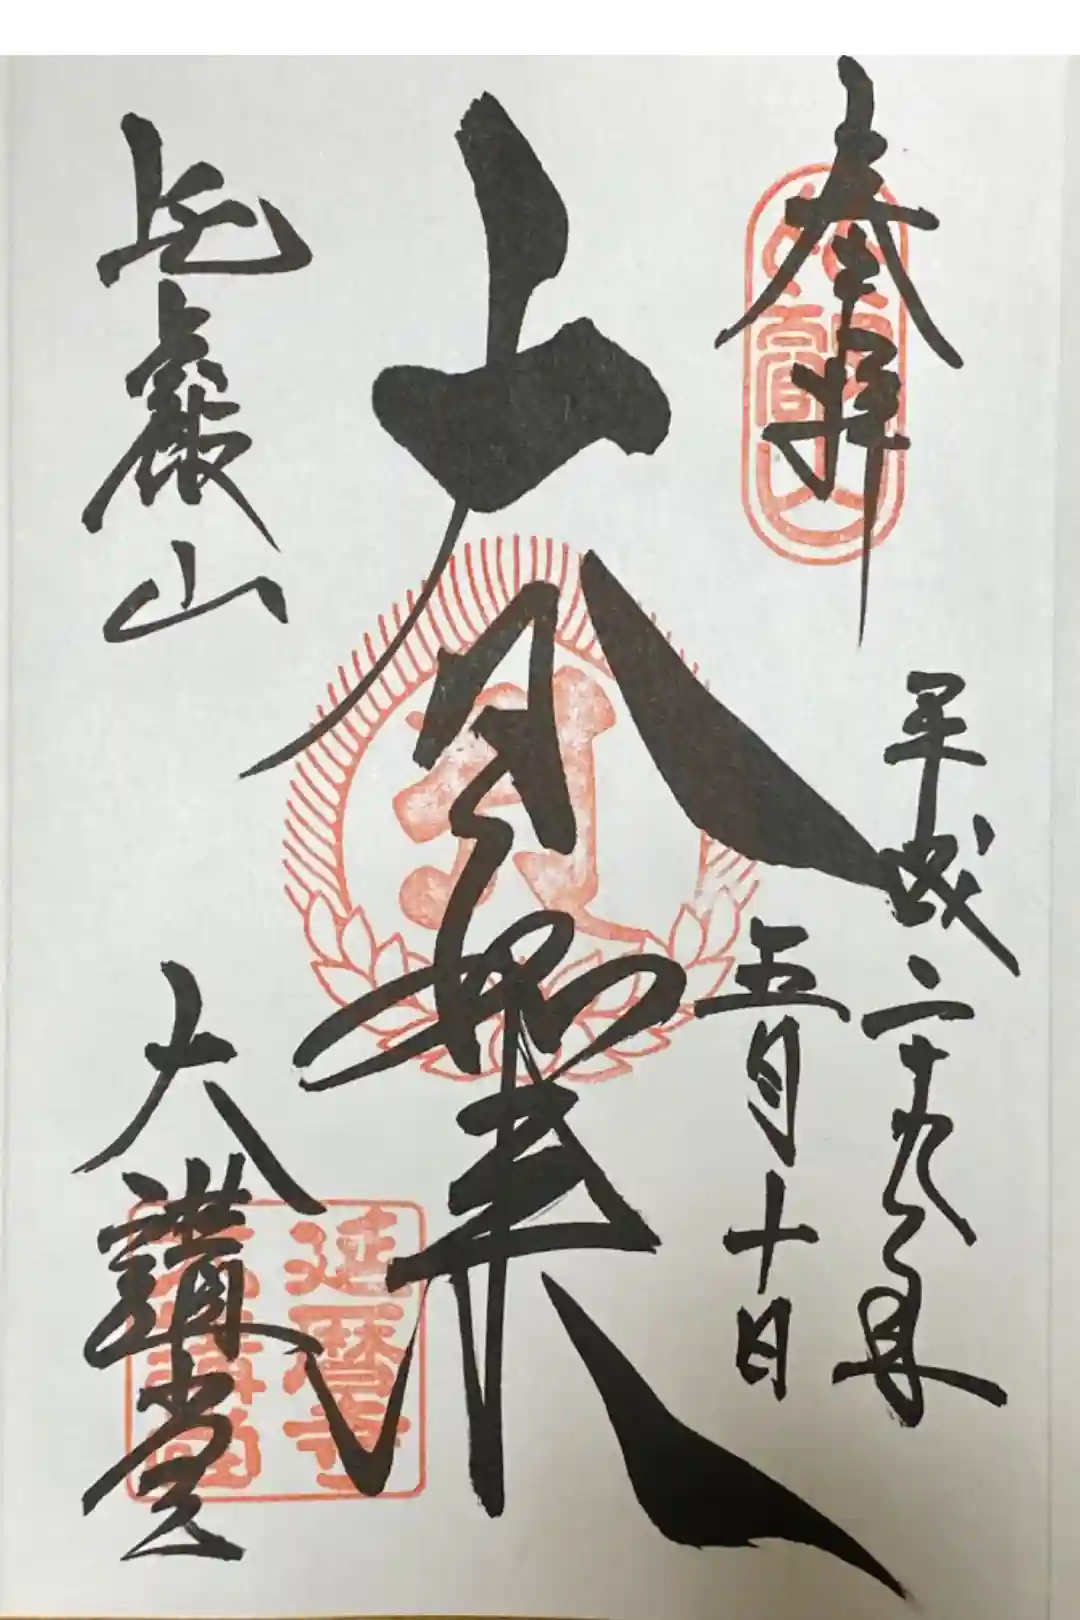 奉拝
平成二十九年
五月十日
大日如来
比叡山
大講堂
延暦寺
大講堂